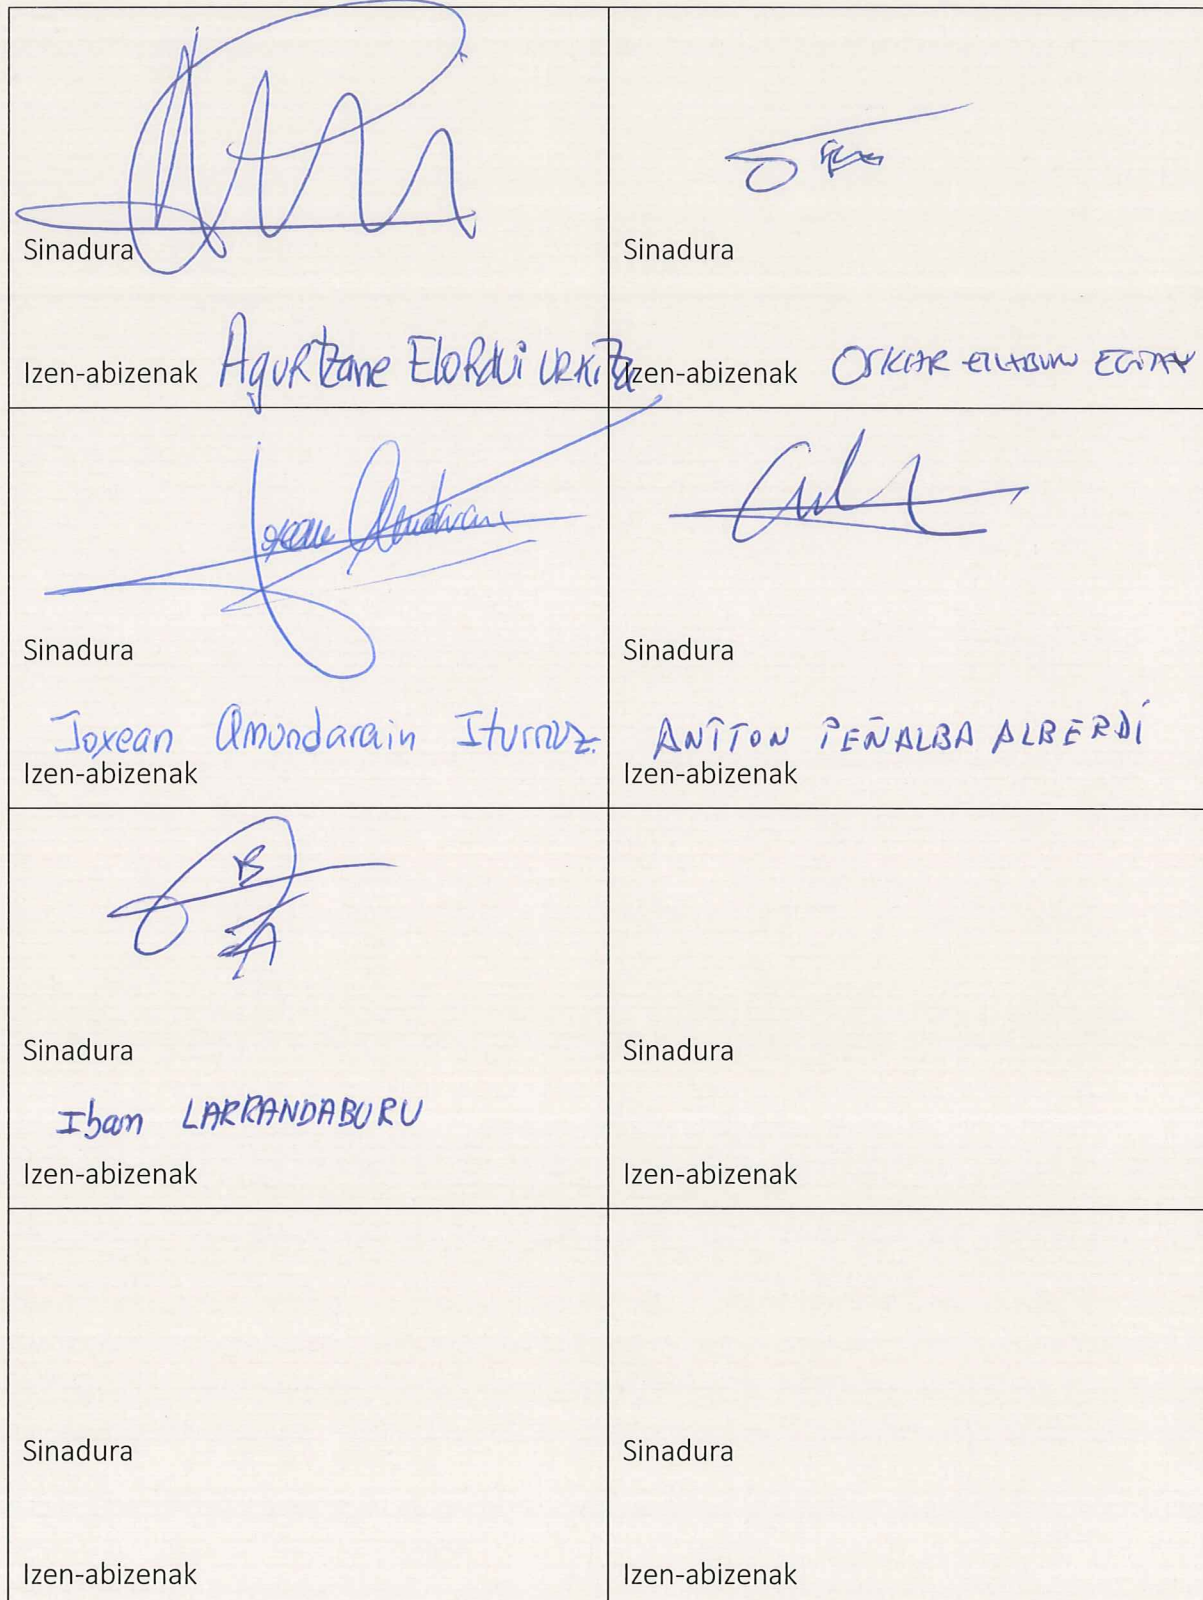 Sinadura
Izen-abizenak Agurtzane Elordui Urkiza
Sinadura
Izen-abizenak OSKAR
Joxean Amundarain
Sinadura
Joxean Amundarain Iturrioz
Izen-abizenak
Sinadura
ANTTON PEÑALBA ALBERDI
Izen-abizenak
B
Sinadura
Iban LARRANDABURU
Izen-abizenak
Sinadura
Izen-abizenak
Sinadura
Izen-abizenak
Sinadura
Izen-abizenak